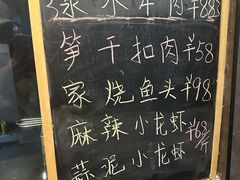 水牛肉¥88
笋干扣肉¥58
家烧鱼头¥98
麻辣小龙虾¥68/斤
蒜泥小龙虾